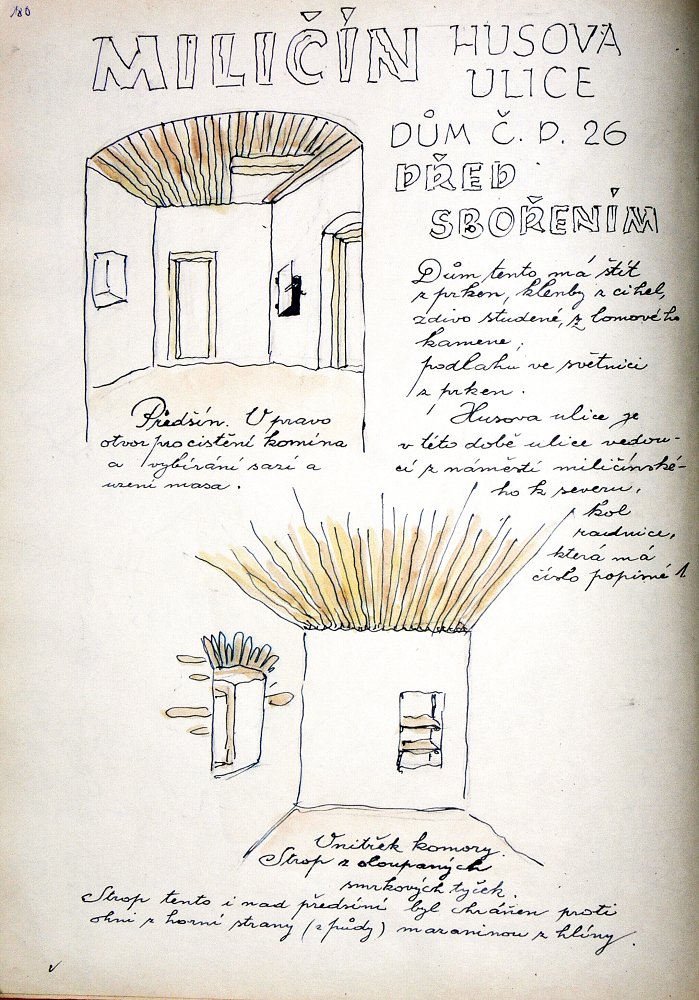 180
MILIČÍN HUSOVA
ULICE
DŮM Č. P. 26
PŘED
SBOŘENÍM
Dům tento má štít
z prken, klenby z cihel,
zdivo studené, z lomového
kamene,
podlahu ve světnici
z prken.
Husova ulice je
v této době ulice vedou-
cí z náměstí miličínské-
ho k severu,
kol
radnice,
která má
číslo popisné 1.
Předsíň. Vpravo
otvor pro cistění komína
a vybírání sazí a
uzení masa.
Vnitřek komory.
Strop z oloupaných
smrkových tyček.
Strop tento i nad předsíní byl chráněn proti
ohni z horní strany (z půdy) mazaninou z hlíny.